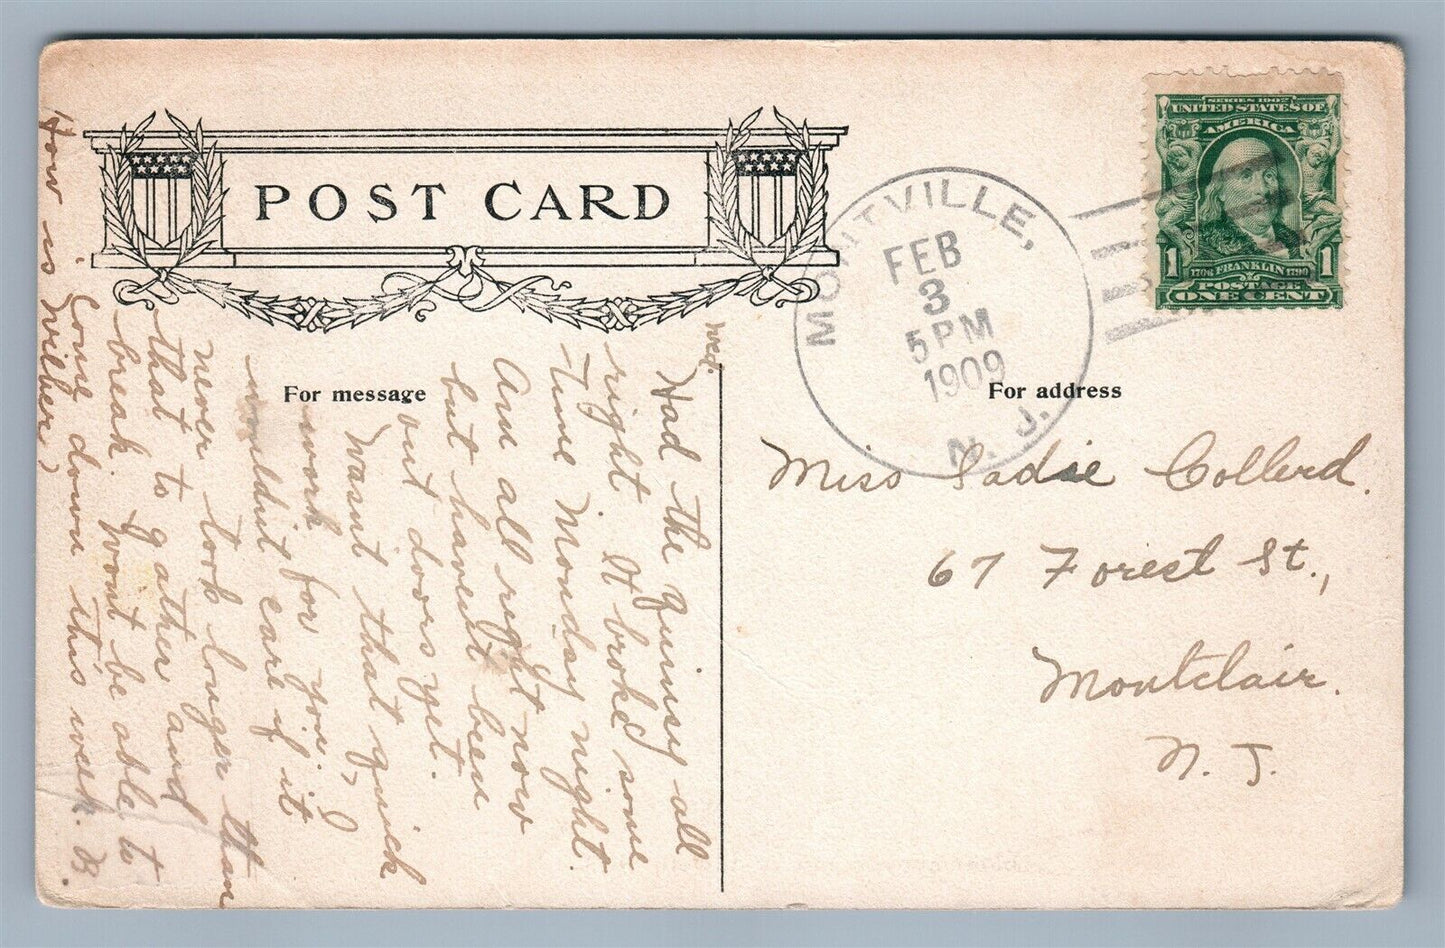 POST CARD
For message
For address
MONTVILLE,
FEB
3
5 PM
1909
N. J.
SERIES 1902
UNITED STATES OF
AMERICA
1
1706 FRANKLIN 1790
1
POSTAGE
ONE CENT
Miss Sadie Collerd.
67 Forest St.,
Montclair.
N. J.
Wed.
Had the quinsy all
right. It broke some
time Monday night.
Am all right now
but havent been
out doors yet.
Wasnt that quick
work for you. I
wouldnt care if it
never took longer than
that to gather and
break. Wont be able to
come down this week. B.
How is Wilber?